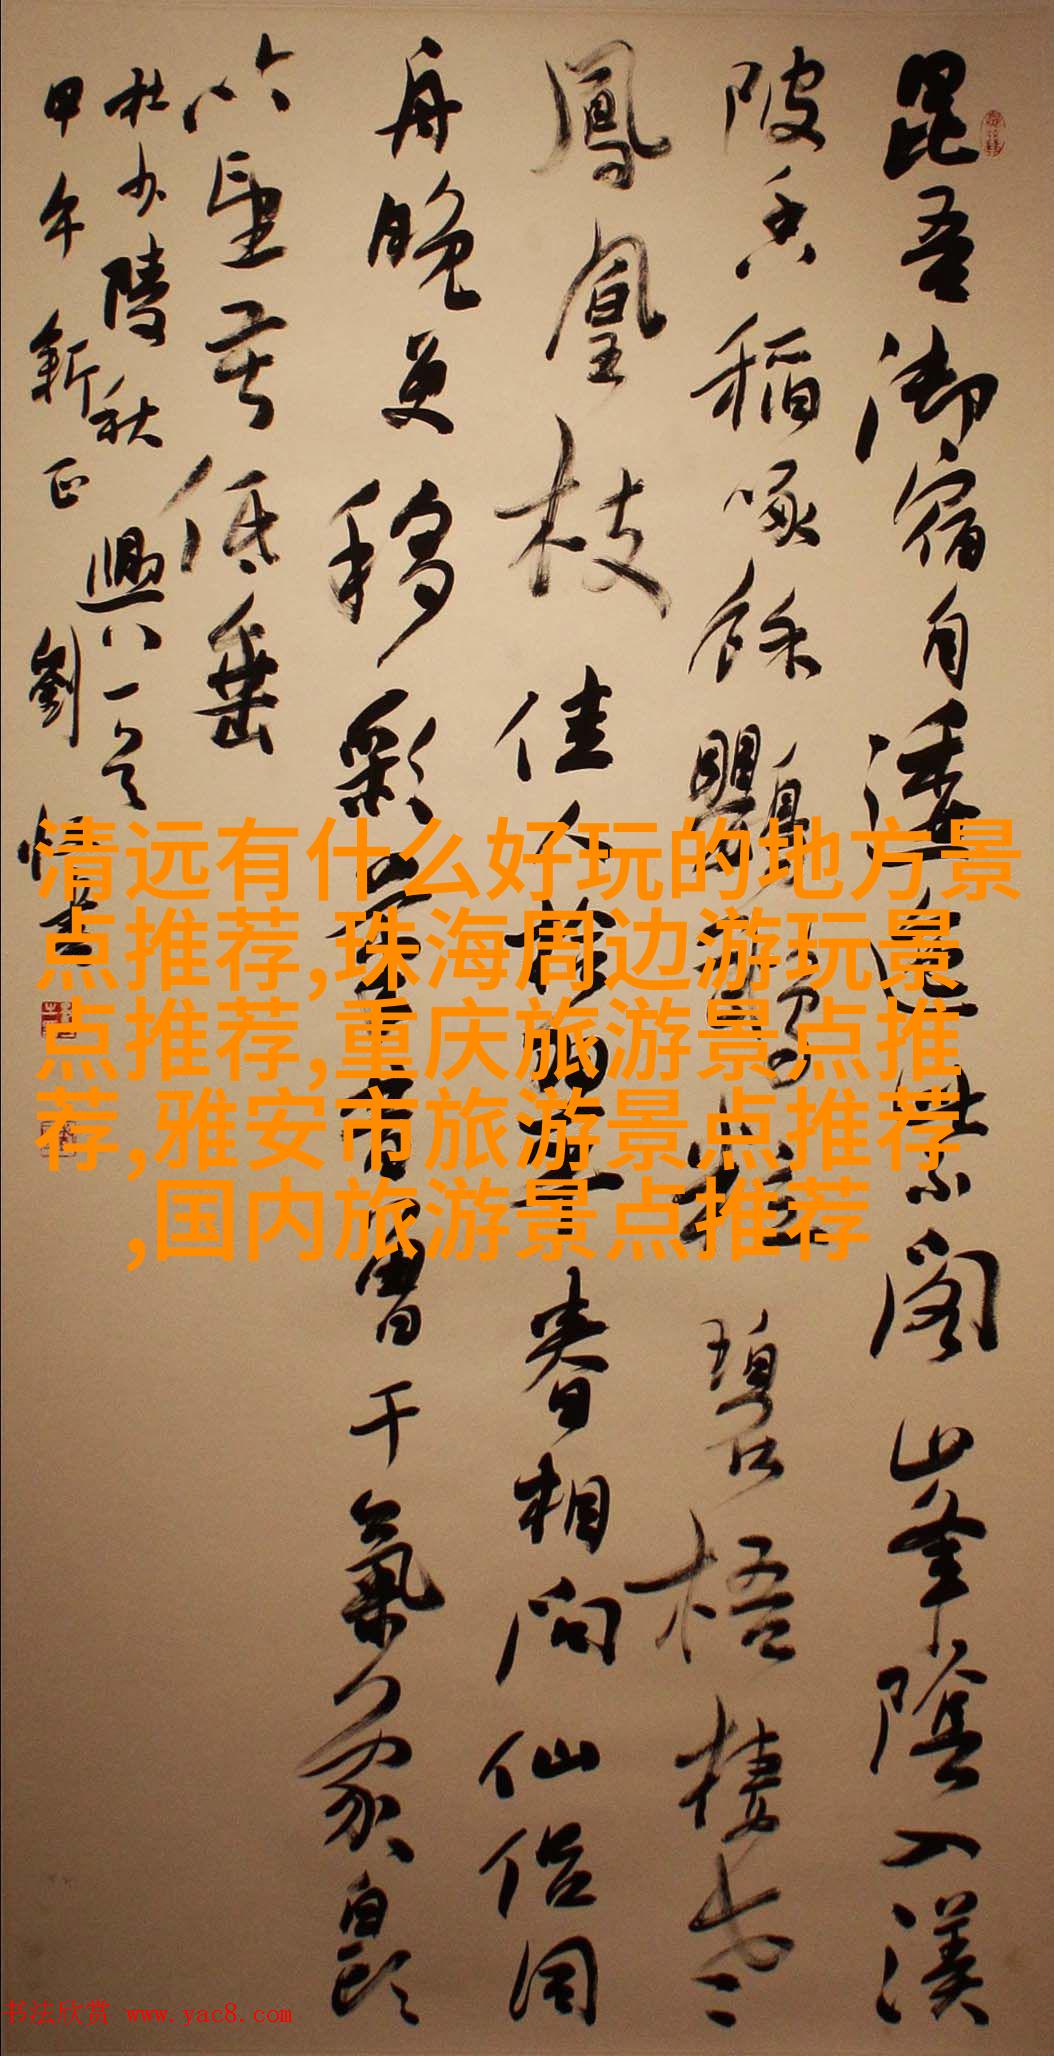 昆吾御宿自逶迤紫閣峯陰入渼
陂香稻啄餘鸚鵡粒碧梧棲老
鳳凰枝佳人拾翠春相問仙侣同
舟晚更移彩筆昔曾干氣象白頭
吟望苦低垂
杜少陵秋興八一首
甲午新正劉恒書
清远有什么好玩的地方景
点推荐,珠海周边游玩景
点推荐,重庆旅游景点推
荐,雅安市旅游景点推荐
,国内旅游景点推荐
书法欣赏 www.yac8.com